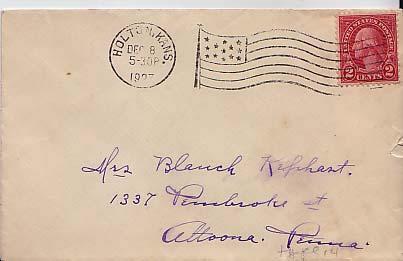 HOLTON, KANS.
DEC 8
5-30P
1927
UNITED STATES POSTAGE
2 CENTS 2
Mrs Blanch Kephart.
1337 Pembroke st
Altoona. Penna.